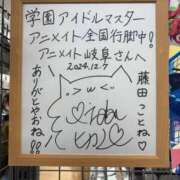 学園アイドルマスター
アニメイト全国行脚中!
アニメイト岐阜さんへ
2024.12.7
藤田ことね♡
ありがとやおね!!
> w <